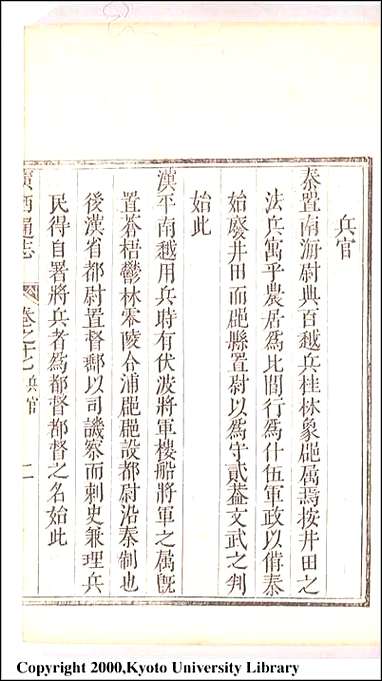 兵官
秦置南海尉典百越兵桂林象郡属焉按井田之
法兵寓乎農居為比閭行為什伍軍政以脩秦
始廢井田而郡縣置尉以為守貳葢文武之判
始此
漢平南越用兵時有伏波將軍樓船將軍之属旣
置蒼梧鬱林零陵合浦郡郡設都尉沿秦制也
後漢省都尉置督郵以司譏察而刺史兼理兵
民得自署將兵者為都督都督之名始此
廣西通志 卷之十七 兵官 二
Copyright 2000,Kyoto University Library